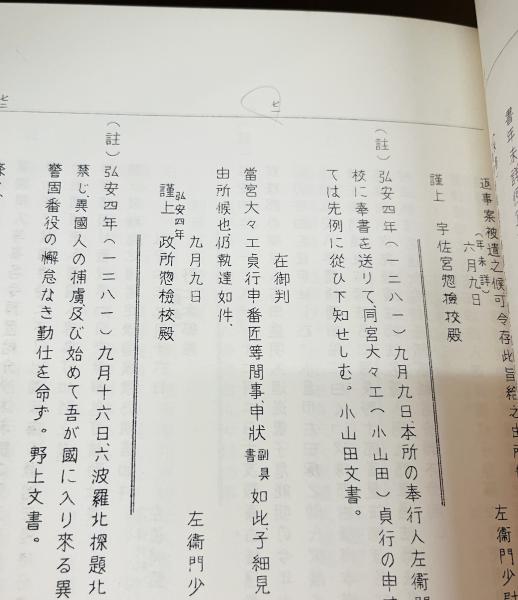 書年未詳
造事案被遺之候可令存此旨給之由所
(年未詳)
六月九日
左衞門少尉
謹上 宇佐宮惣檢校殿
七一
(註)弘安四年(一二八一)九月九日、本所の奉行人左衞門
校に奉書を送りて、同宮大々工(小山田)貞行の申
ては先例に從ひ下知せしむ。小山田文書。
在御判
當宮大々工貞行申番匠等間事、申狀副具書如此、子細見
由所候也、仍執達如件、
九月九日
左衞門少
弘安四年
謹上 政所惣檢校殿
七二
(註)弘安四年(一二八一)九月十六日、六波羅北探題北
禁じ異國人の捕虜及び始めて吾が國に入り來る異
警固番役の懈怠なき勤仕を命ず。野上文書。